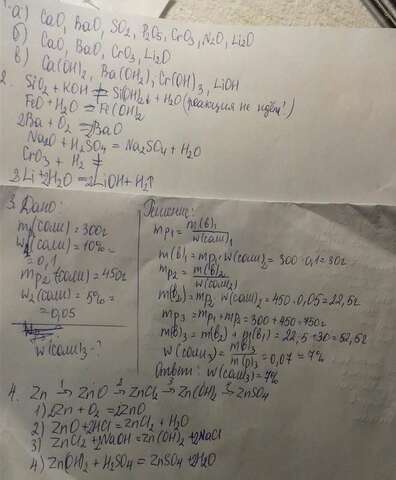 1. а) CaO, BaO, SO2, P2O5, CrO3, N2O, Li2O
б) CaO, BaO, CrO3, Li2O
в) Ca(OH)2, Ba(OH)2, Cr(OH)3, LiOH
2. SiO2 + KOH ≠ Si(OH)2↓ + H2O (реакция не идёт!)
FeO + H2O ≠ Fe(OH)2
2Ba + O2 = 2BaO
Na2O + H2SO4 = Na2SO4 + H2O
CrO3 + H2 ≠
Li + 2H2O = 2LiOH + H2↑
3. Дано:
m1(соли) = 300г
w1(соли) = 10% =
= 0,1
mр2(соли) = 450г
w2(соли) = 5% =
= 0,05
w(соли)3 - ?
Решение:
mр1 = m(в)1 / w(соли)1
m(в)1 = mр1 · w(соли)2 = 300 · 0,1 = 30г
mр2 = m(в)2 / w(соли2)
m(в2) = mр2 · w(соли)2 = 450 · 0,05 = 22,5г
mр3 = mр1 + mр2 = 300 + 450 = 750г
m(в)3 = m(в2) + m(в1) = 22,5 + 30 = 52,5г
w(соли3) = m(в)3 / m(р)3 = 0,07 = 7%
Ответ: w(соли3) = 7%
4. Zn 1→ ZnO 2→ ZnCl2 3→ Zn(OH)2 4→ ZnSO4
1) 2Zn + O2 = 2ZnO
2) ZnO + 2HCl = ZnCl2 + H2O
3) ZnCl2 + 2NaOH = Zn(OH)2 + 2NaCl
4) Zn(OH)2 + H2SO4 = ZnSO4 + 2H2O